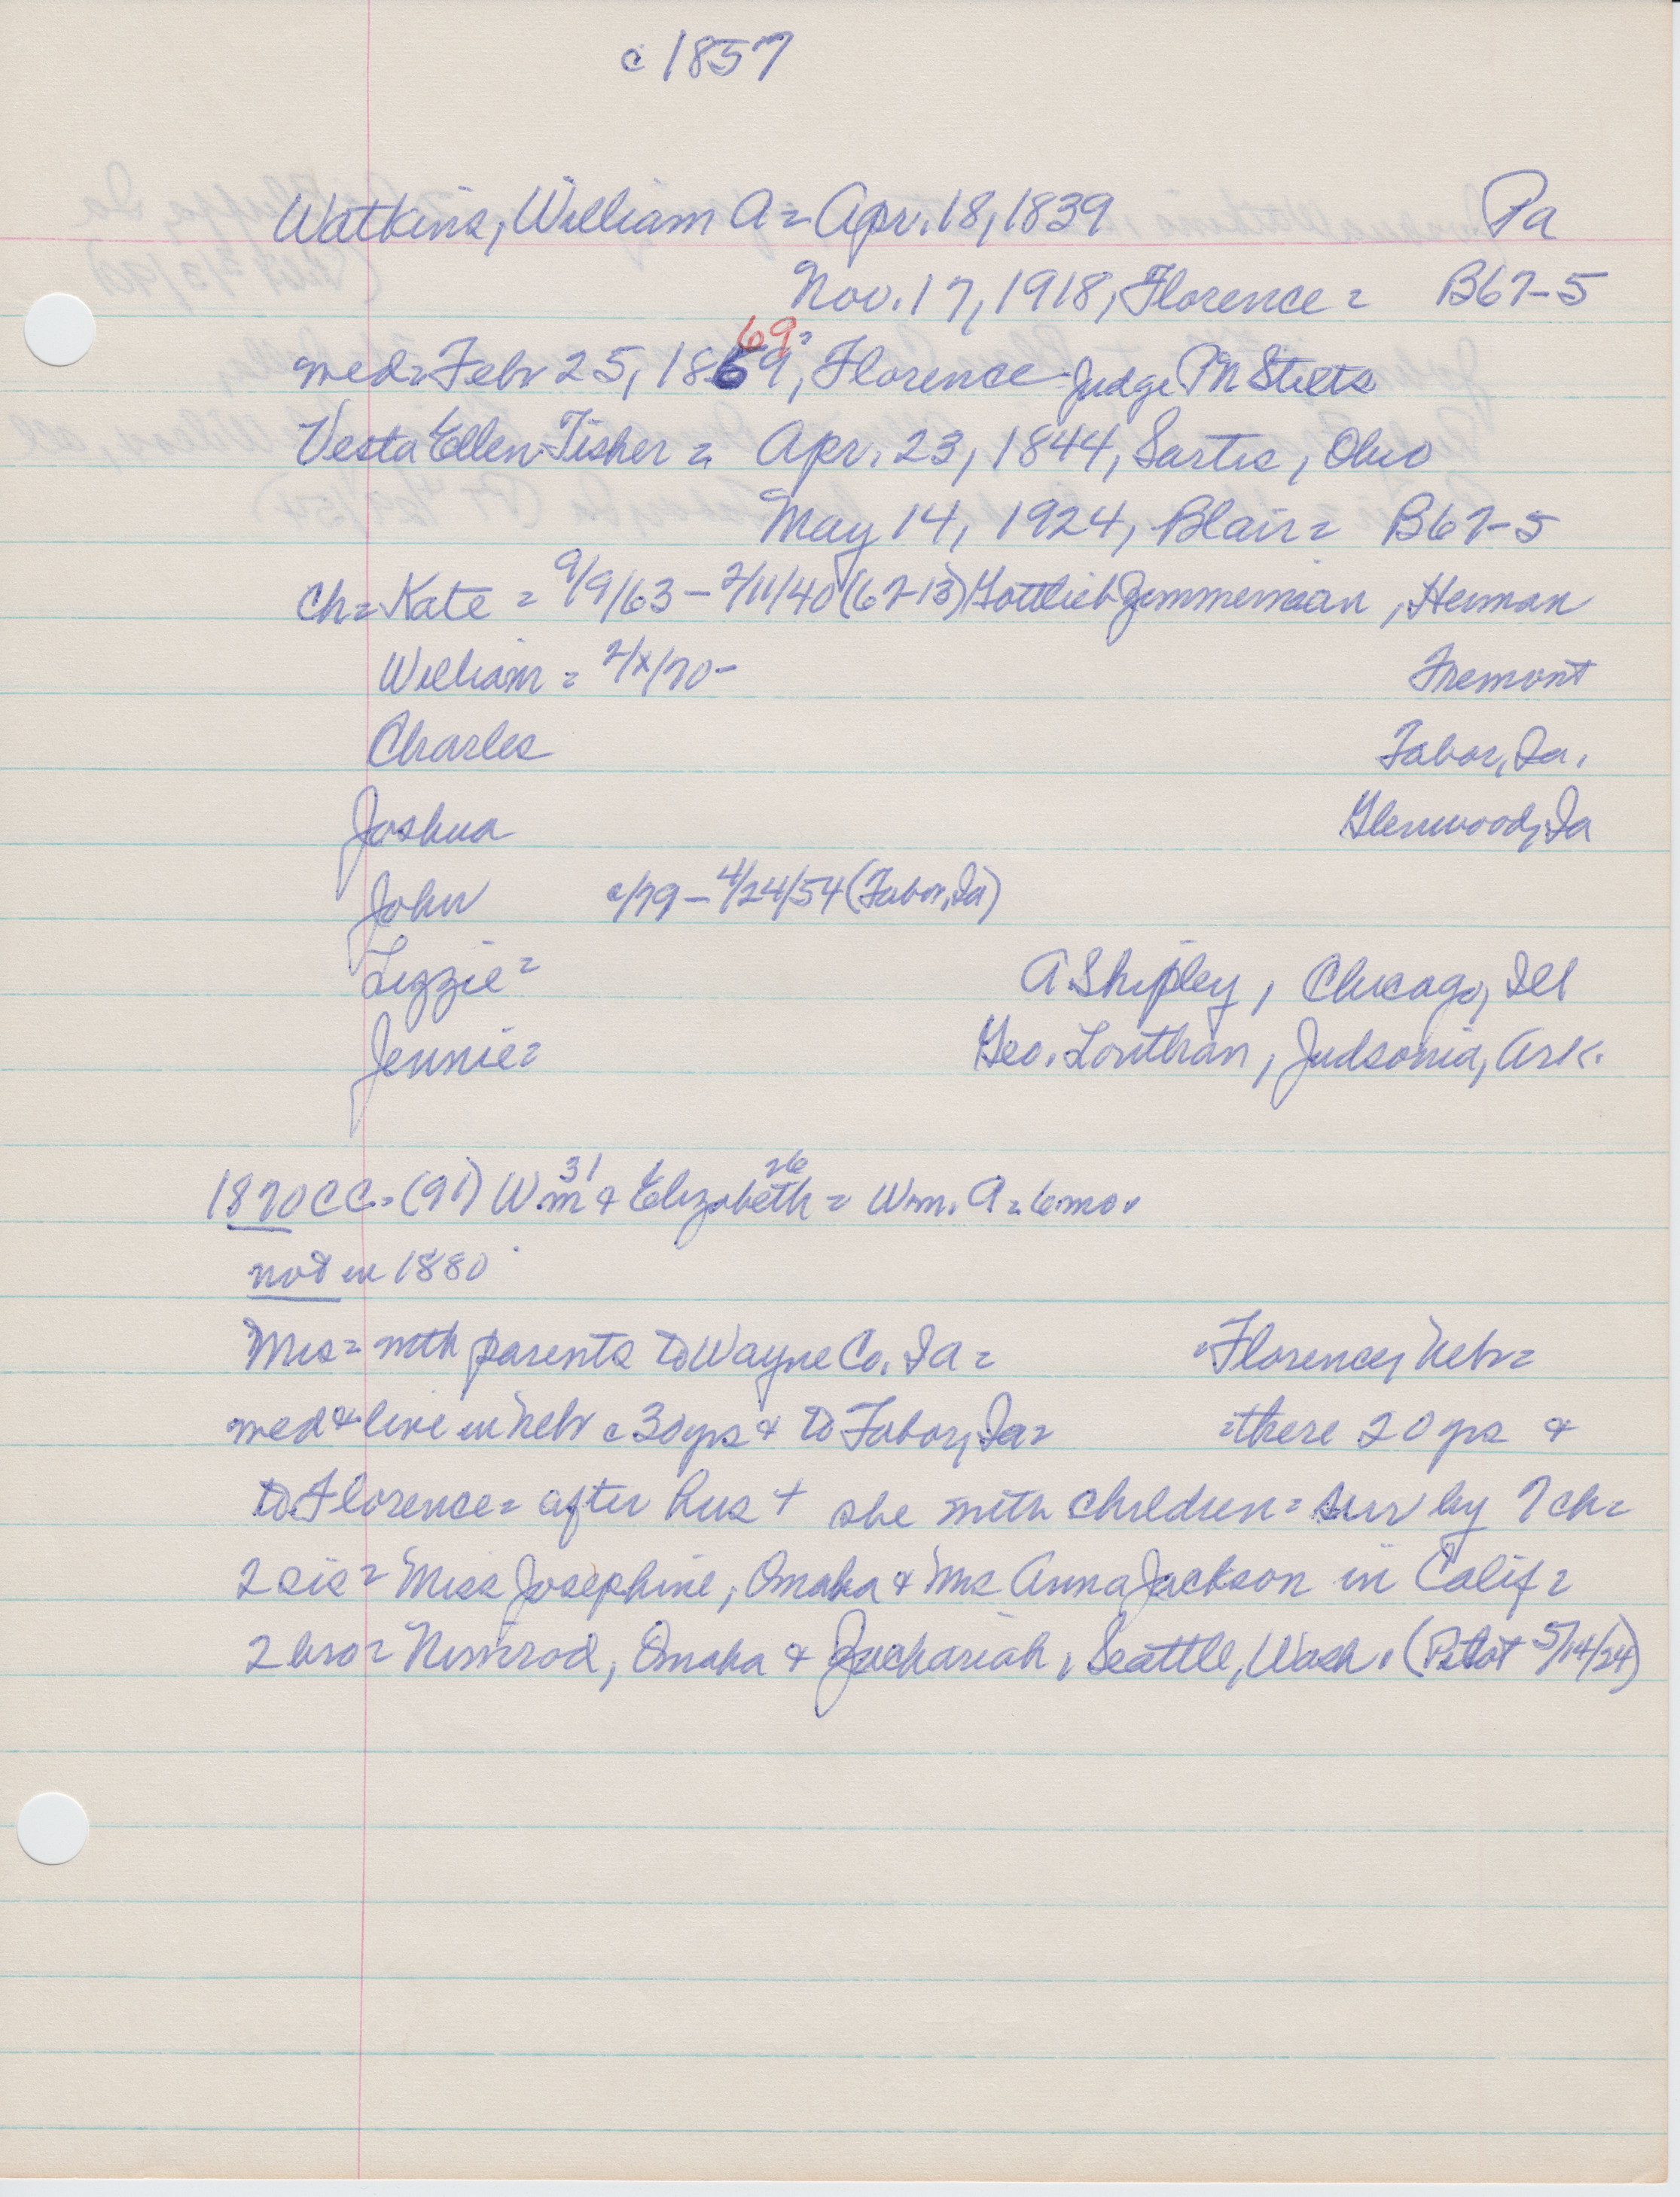 c 1857
Watkins, William A = Apr. 18, 1839 Pa
Nov. 17, 1918, Florence = B67-5
69?
med = Feb 25, 1869, Florence Judge PM Stilts
Vesta Ellen Fisher = Apr. 23, 1844, Sartis, Ohio
May 14, 1924, Blair = B67-5
Ch = Kate = 9/9/63 - 2/11/40 (67-13) Gottlieb Zimmerman, Herman
William = 2/x/70 - Fremont
Charles Tabor, Ia.
Joshua Glenwood, Ia
John c/79 - 4/24/54 (Tabor, Ia)
Lizzie = A Shipley, Chicago, Ill
Jennie = Geo. Louthan, Judsonia, Ark.
31 26
1870 CC = (91) Wm & Elizabeth = Wm. A = 6 mo.
not in 1880
Mrs = with parents to Wayne Co. Ia = Florence, Nebr =
med & live in Nebr c 30 yrs & to Tabor, Ia = =there 20 yrs &
to Florence = after hus + she with children = sur by 7 ch =
2 sis = Miss Josephine, Omaha & Mrs Anna Jackson in Calif =
2 bro = Nimrod, Omaha & Zachariah, Seattle, Wash. (Pilot 5/14/24)